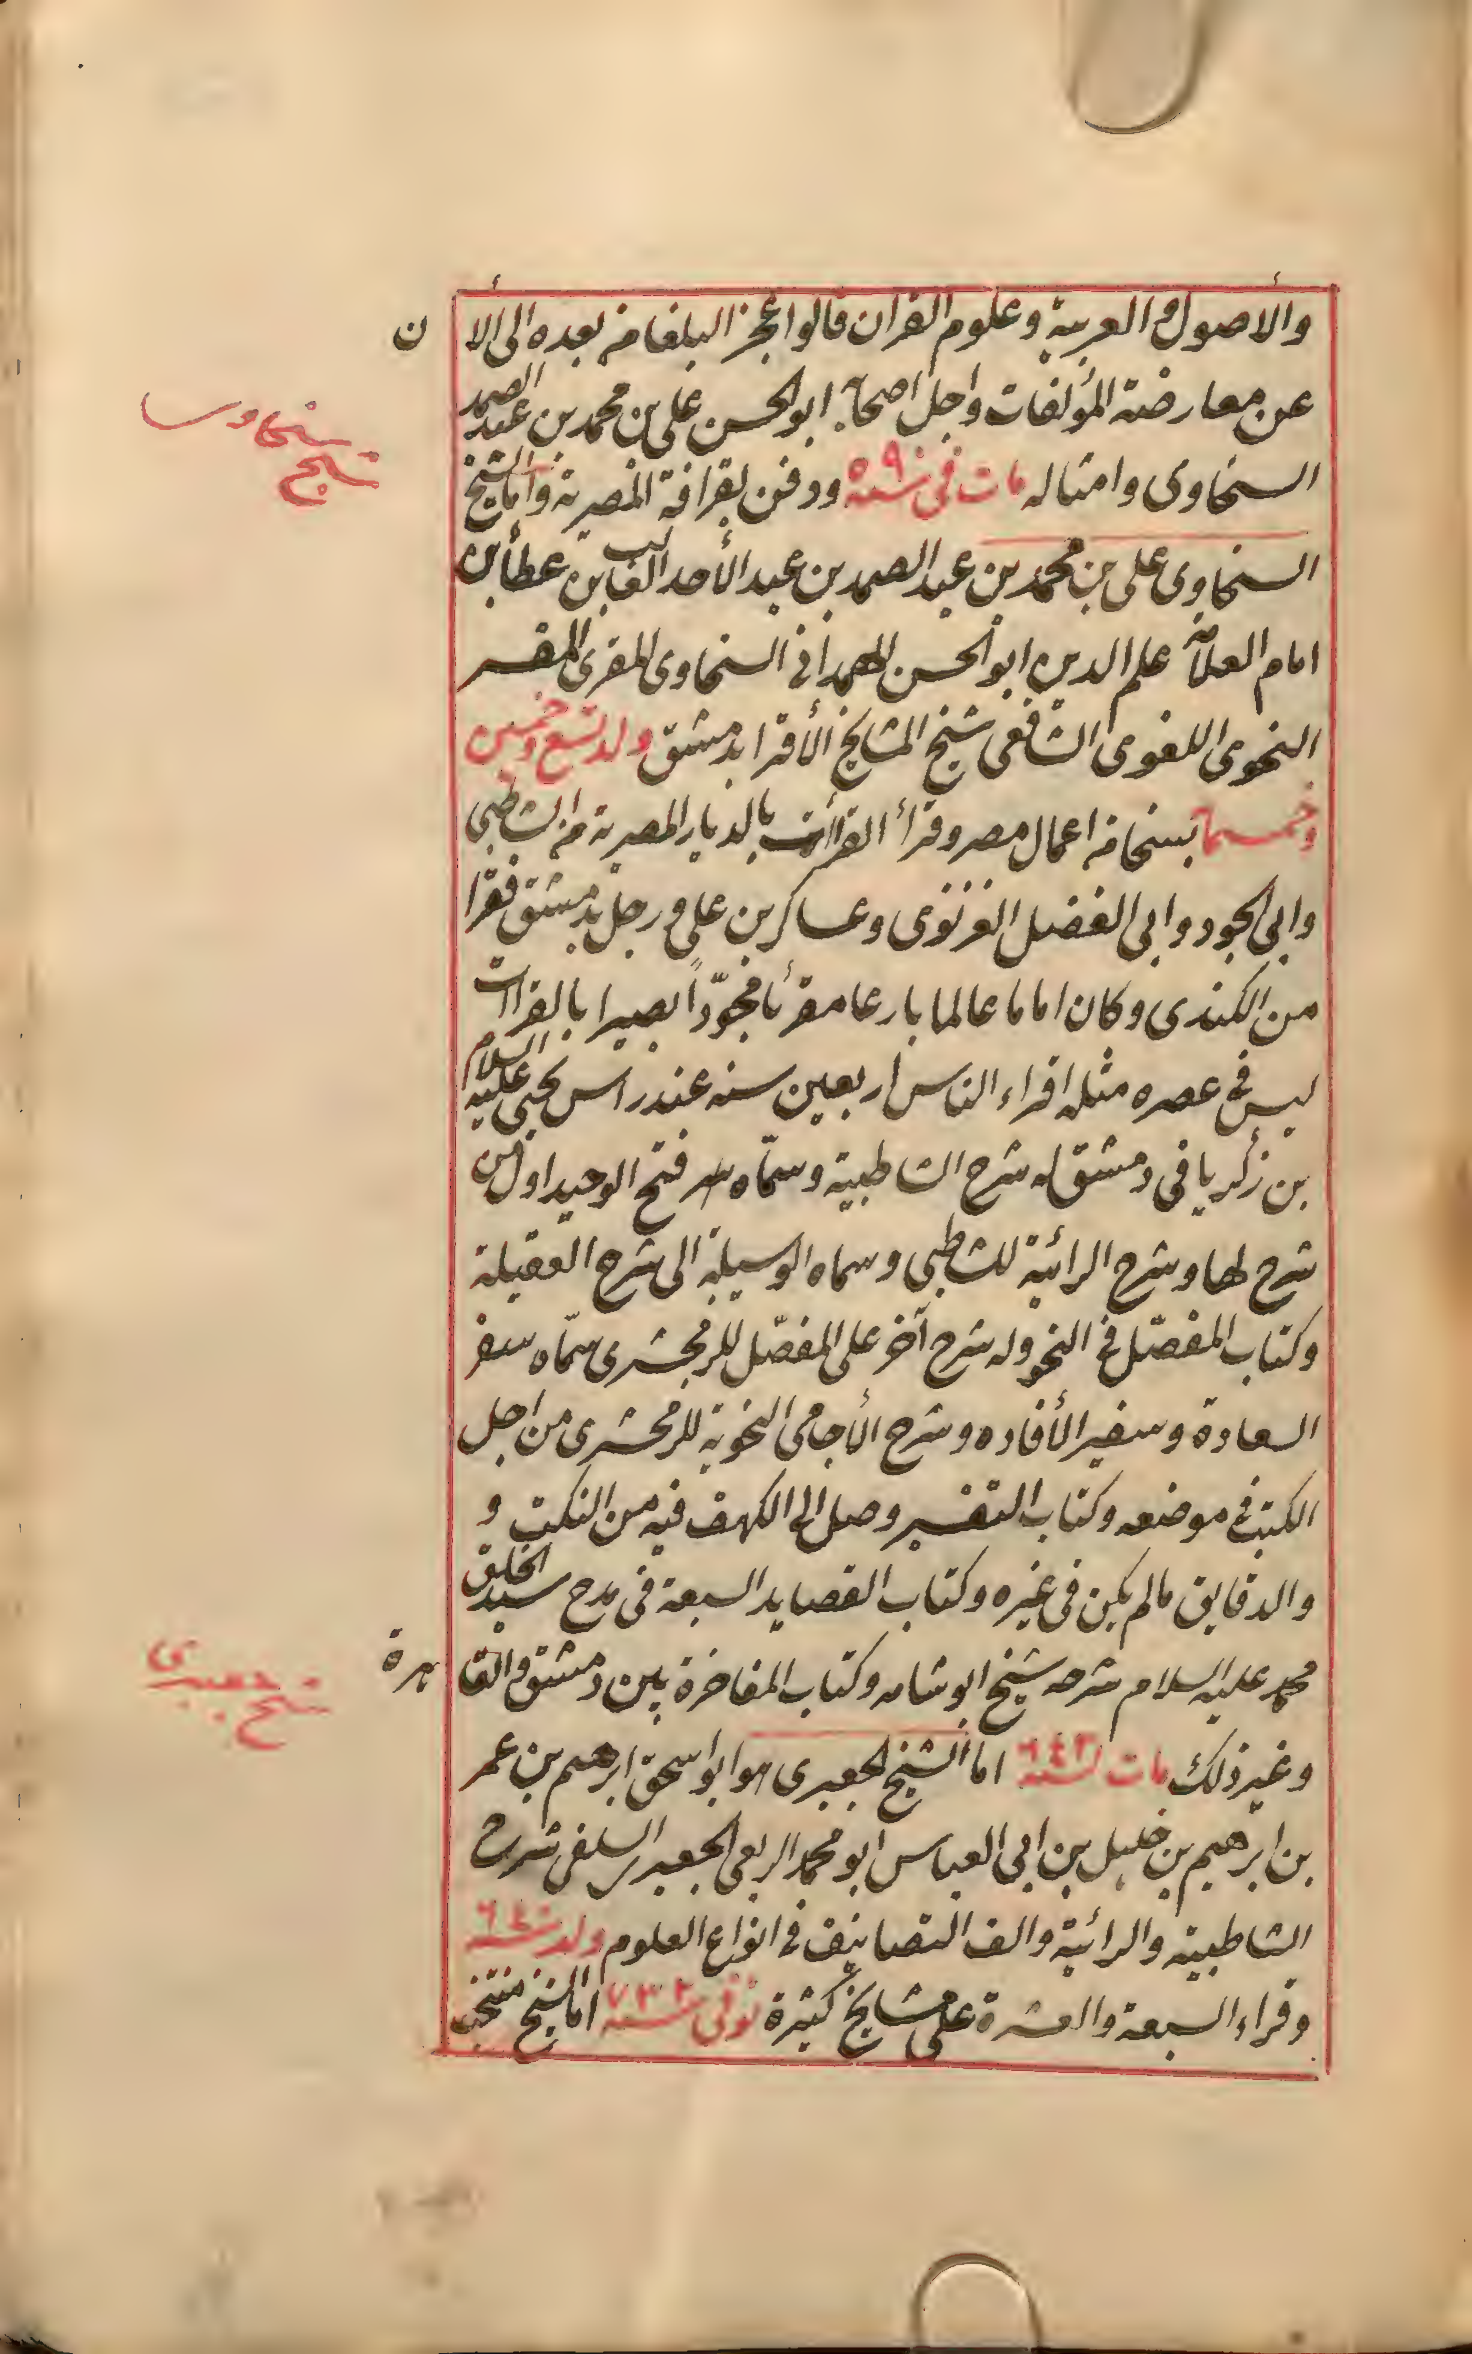 والأصول والعربية وعلوم القران قالوا عجز البلغا من بعده الى الأن
عن معارضة المؤلفات واجل اصحابه ابو الحسن على بن محمد بن عبد الصمد
السخاوى وامثاله مات فى سنة ٥٩٠ ودفن بقرافة المصرية واما الشيخ
شيخ سخاوى
السخاوى على بن محمد بن عبد الصمد بن عبد الأحد الغالب بن عطأ بن
امام العلامة علم الدين ابو الحسن الهمدانى السخاوى المقرى المفسر
النحوى اللغوى الشافعى شيخ المشايخ الأقرا بدمشق ولد تسع وخمسين
وخمسمائة بسخا من اعمال مصر وقرأ القراأت بالديار المصرية من الشاطبى
وابى الجود وابى الفضل الغزنوى وعساكر بن على ورحل بدمشق فقرا
من الكندى وكان اماما عالما بارعا مقرئا مجوّداً بصيرا بالقراات
ليس فى عصره مثله اقراء الناس اربعين سنه عند راس يحيى عليه السلام
بن زكريا فى دمشق له شرح الشاطبية وسمّاه فتح الوحيد اول من
شرح لها وشرح الرائية للشاطبى وسماه الوسيلة الى شرح العقيلة
وكتاب المفصّل فى النحو وله شرح آخر على المفصّل للزمخشرى سمّاه سفر
السعادة وسفير الأفاده وشرح الأحاجى النحوية للزمخشرى من اجل
الكتب فى موضعه وكتاب التفسير وصل الى الكهف فيه من النكت و
والدقايق مالم يكن فى غيره وكتاب القصايد السبعة فى مدح سيد الخلق
محمد عليه السلام شرحه شيخ ابو شامه وكتاب المفاخرة بين دمشق والقاهرة
شيخ جعبرى
وغير ذلك مات سنة ٦٤٣ اما الشيخ الجعبرى هو ابو اسحق ابرهيم بن عمر
بن ابرهيم بن خليل بن ابى العباس ابو محمد الربعى الجعبر السلفى شرح
الشاطبية والرائية والف التصانيف فى انواع العلوم ولد سنة ٦٤٠
وقراء السبعة والعشرة على مشايخ كثيرة توفى سنة ٧٣٢ اما الشيخ منتخب